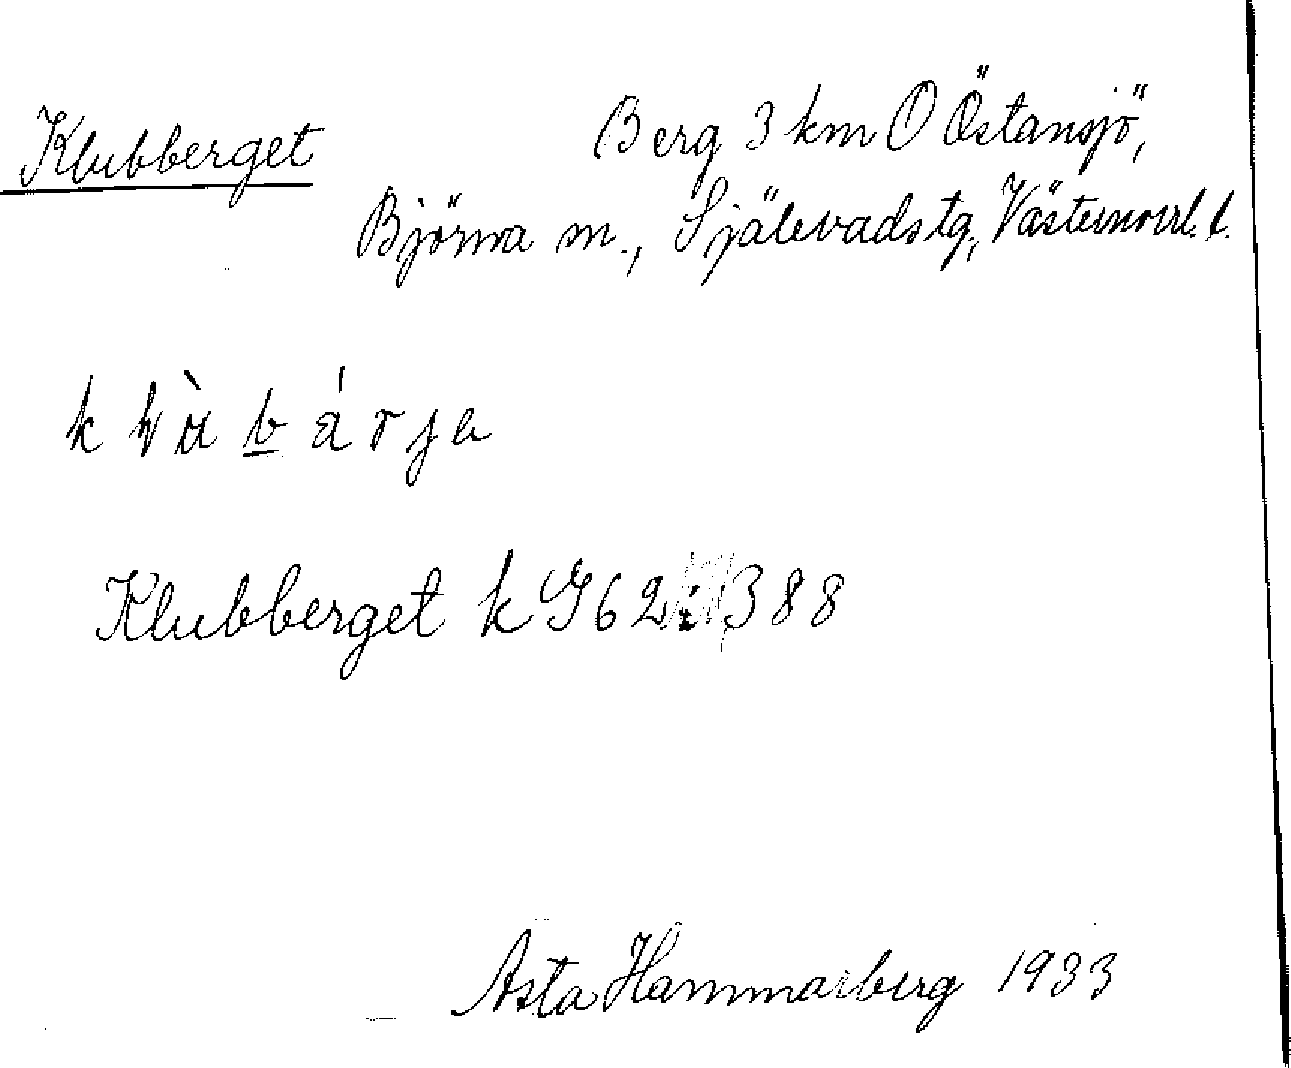 Klubberget
Berg 3 km O Östansjö,
Björna sn., Själevads tg., Västernorrl. l.
Klubberget k G62 388
Asta Hammarberg 1933